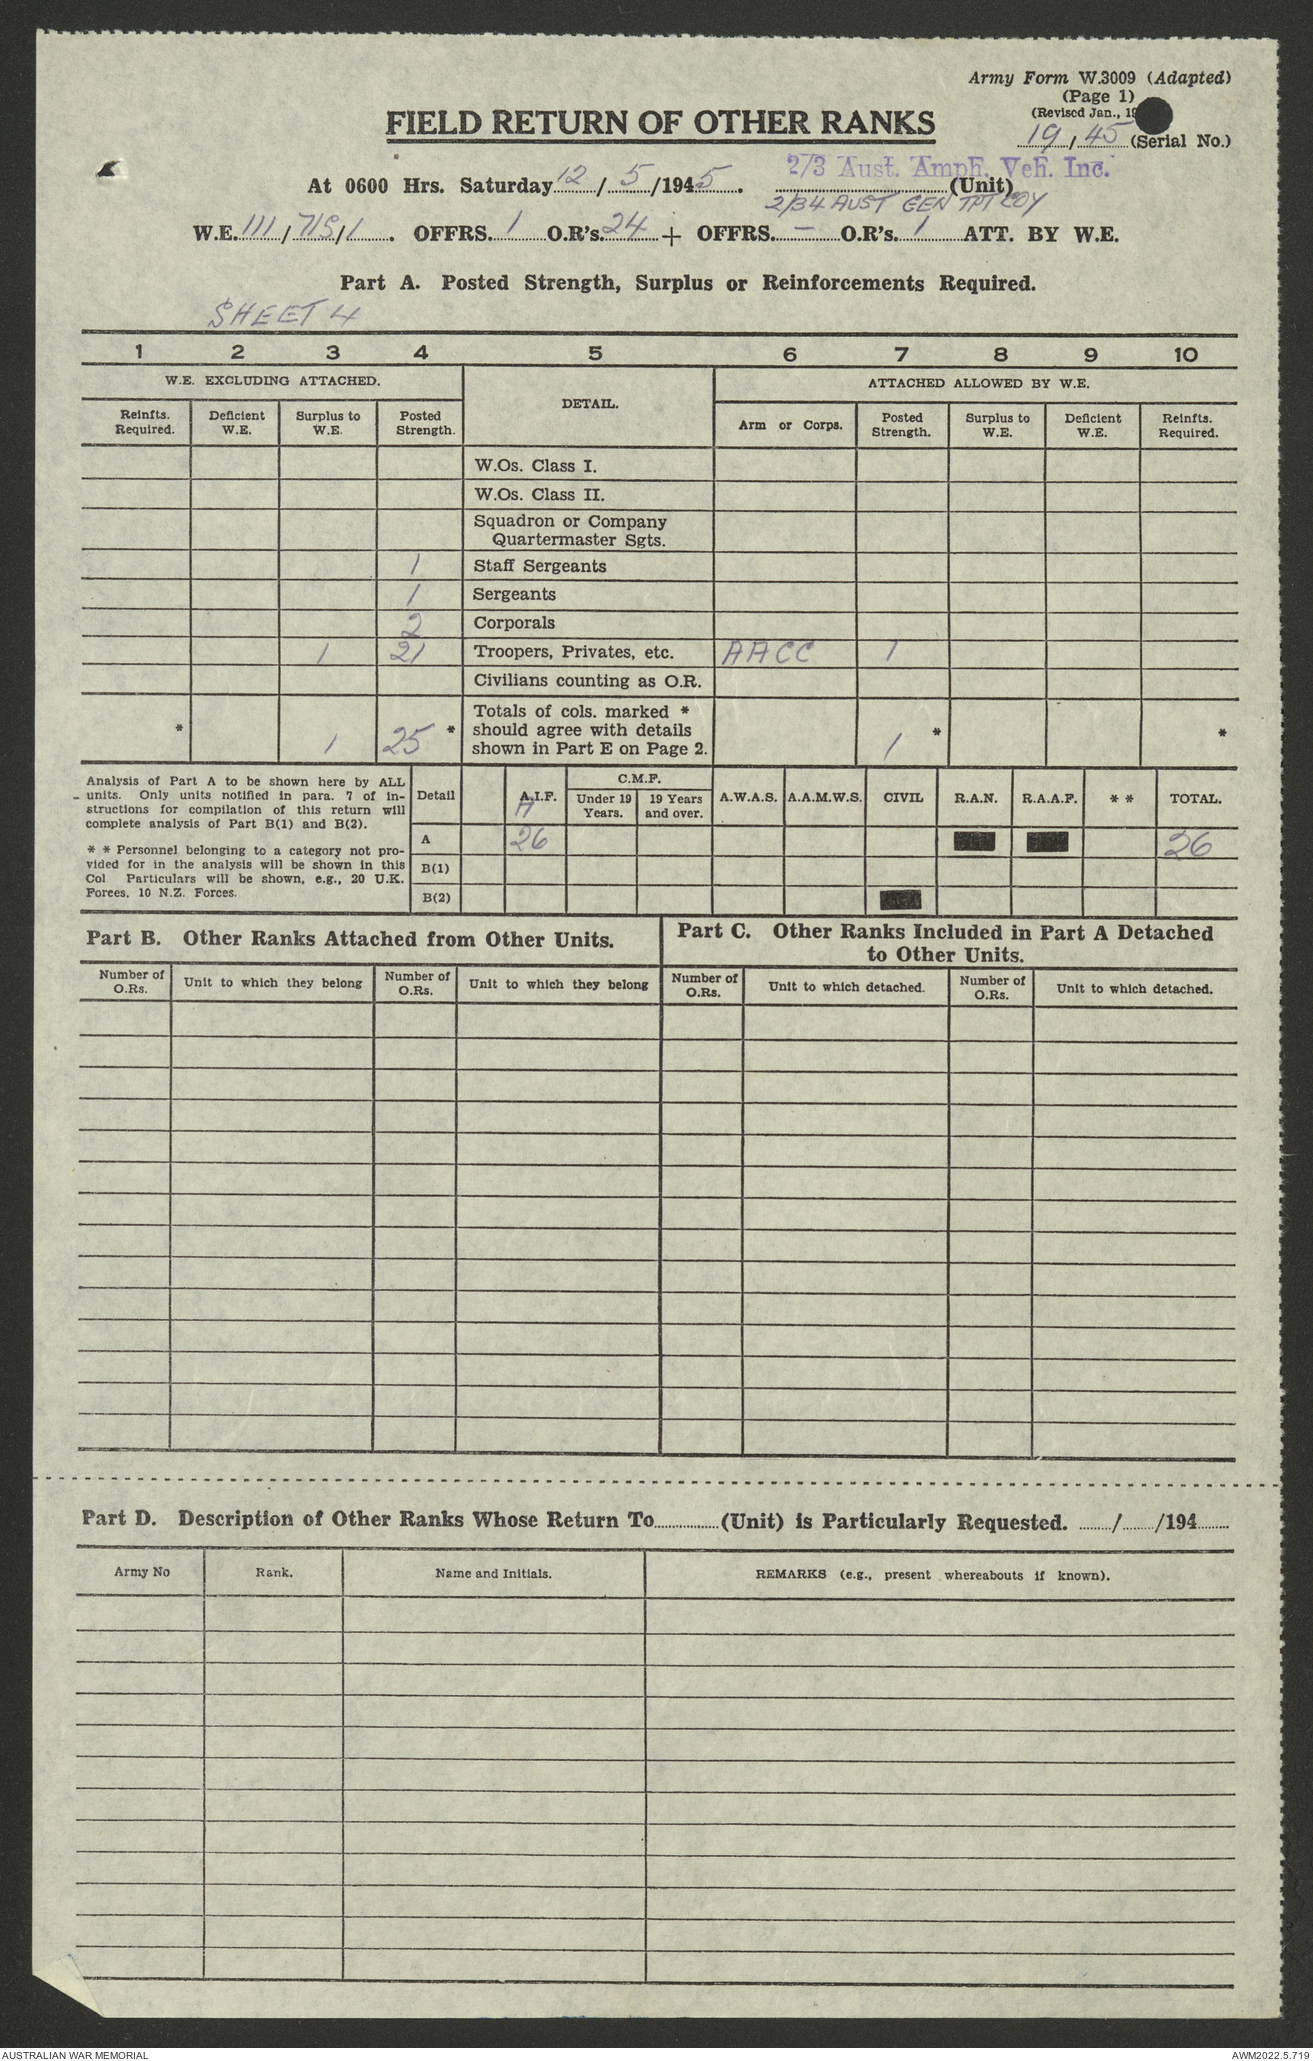 Army Form W.3009 (Adapted)
(Page 1)
(Revised Jan., 19
19/45 (Serial No.)
FIELD RETURN OF OTHER RANKS
2/3 Aust. Amph. Veh. Inc.
At 0600 Hrs. Saturday 12/5/1945. (Unit)
2/34 AUST GEN TPT COY
W.E. 111/71S/1. OFFRS. 1 O.R's. 24 + OFFRS. — O.R's. 1 ATT. BY W.E.
Part A. Posted Strength, Surplus or Reinforcements Required.
SHEET 4
1 2 3 4 5 6 7 8 9 10
W.E. EXCLUDING ATTACHED. DETAIL. ATTACHED ALLOWED BY W.E.
Reinfts. Required. Deficient W.E. Surplus to W.E. Posted Strength. Arm or Corps. Posted Strength. Surplus to W.E. Deficient W.E. Reinfts. Required.
W.Os. Class I.
W.Os. Class II.
Squadron or Company
Quartermaster Sgts.
1 Staff Sergeants
1 Sergeants
2 Corporals
1 21 Troopers, Privates, etc. AACC 1
Civilians counting as O.R.
Totals of cols. marked *
* 1 25 * should agree with details * *
shown in Part E on Page 2. 1
Analysis of Part A to be shown here by ALL
units. Only units notified in para. 7 of in-
structions for compilation of this return will
complete analysis of Part B(1) and B(2).
* * Personnel belonging to a category not pro-
vided for in the analysis will be shown in this
Col Particulars will be shown, e.g., 20 U.K.
Forces, 10 N.Z. Forces.
Detail A.I.F. C.M.F. A.W.A.S. A.A.M.W.S. CIVIL R.A.N. R.A.A.F. * * TOTAL.
A
Under 19 Years. 19 Years and over.
A 26 26
B(1)
B(2)
Part B. Other Ranks Attached from Other Units.
Part C. Other Ranks Included in Part A Detached
to Other Units.
Number of O.Rs. Unit to which they belong Number of O.Rs. Unit to which they belong Number of O.Rs. Unit to which detached. Number of O.Rs. Unit to which detached.
Part D. Description of Other Ranks Whose Return To (Unit) is Particularly Requested. / /194
Army No Rank. Name and Initials. REMARKS (e.g., present whereabouts if known).
AUSTRALIAN WAR MEMORIAL AWM2022.5.719